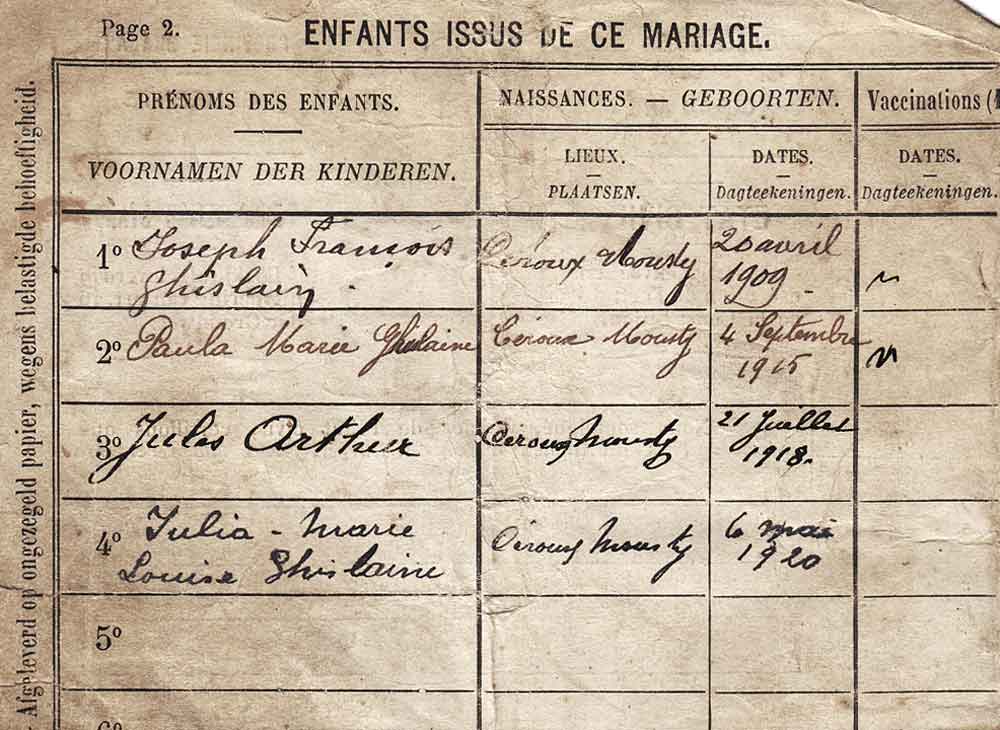 Page 2.
ENFANTS ISSUS DE CE MARIAGE.
PRÉNOMS DES ENFANTS.
VOORNAMEN DER KINDEREN.
NAISSANCES. — GEBOORTEN.
LIEUX.
PLAATSEN.
DATES.
Dagteekeningen.
Vaccinations (
DATES.
Dagteekeningen.
1º Joseph François
Ghislain.
Céroux Mousty
20 avril
1909.
2º Paula Marie Ghislaine
Céroux Mousty
4 Septembre
1915
3º Jules Arthur
Céroux Mousty
21 Juillet
1918.
4º Julia - Marie
Louise Ghislaine
Céroux Mousty
6 mai
1920
5º
6º
Afgeleverd op ongezegeld papier, wegens belastigde behoeftigheid.